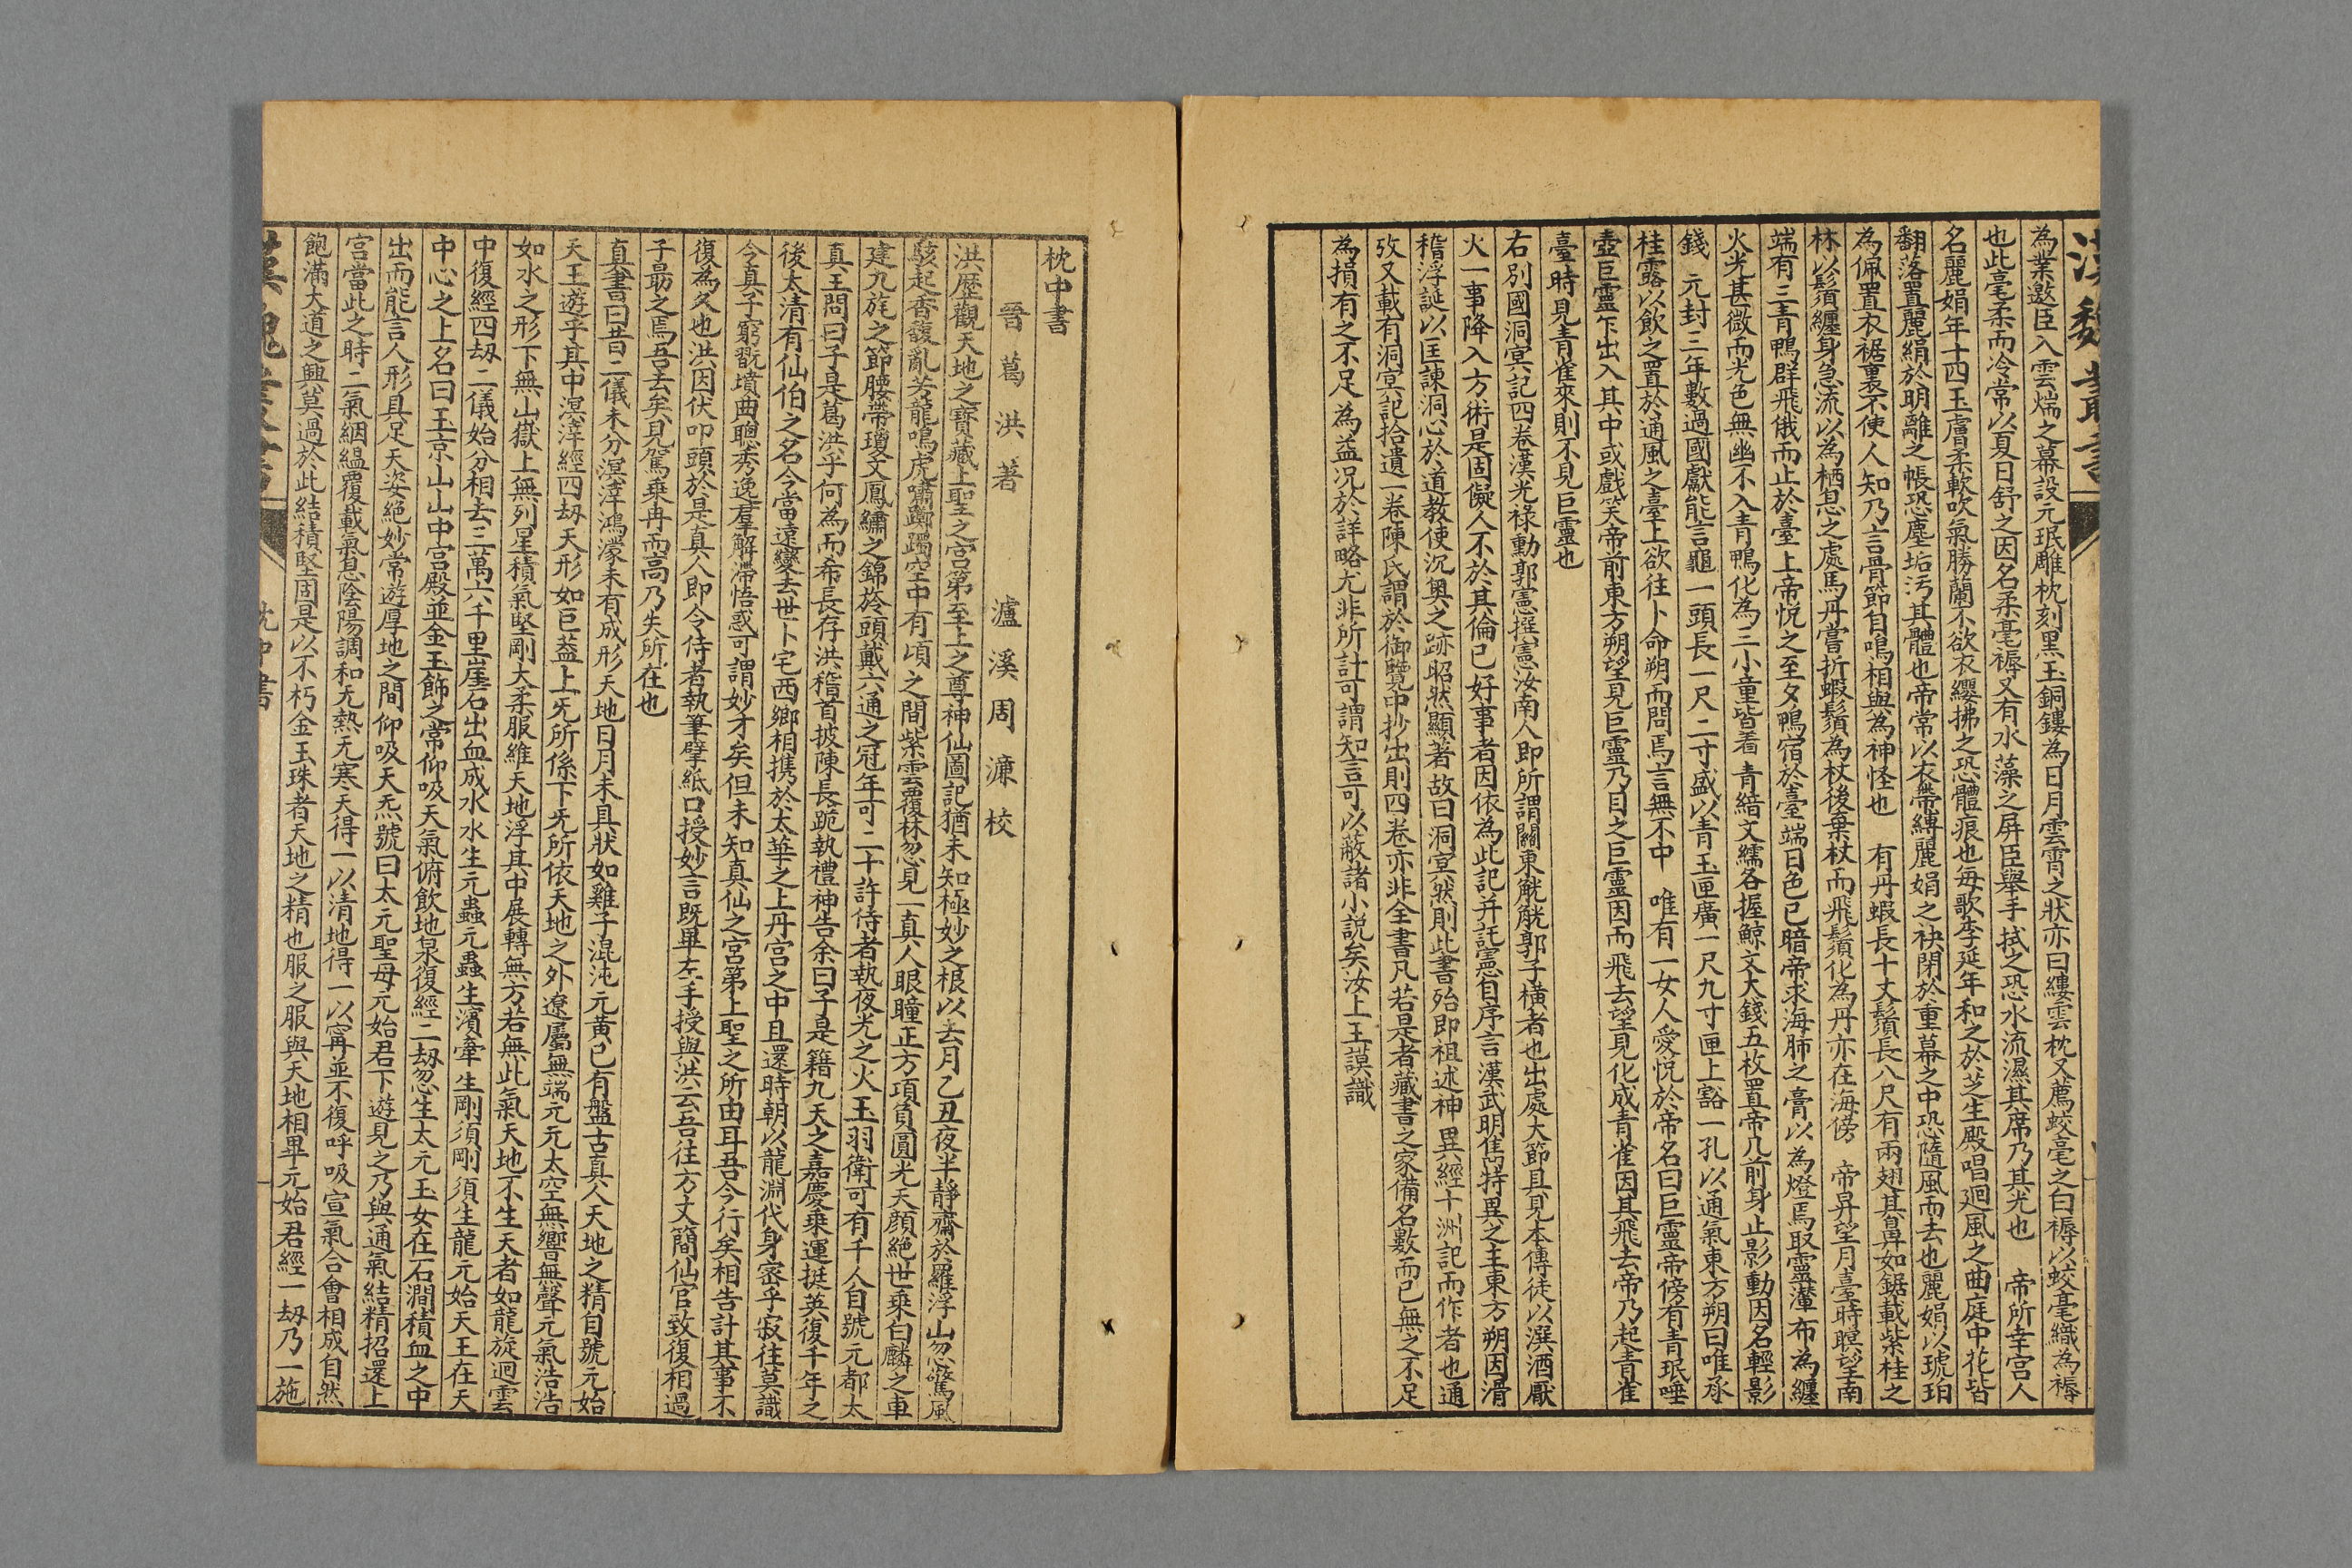 漢魏叢書
為業邀臣入雲煓之幕設元珉雕枕刻黑玉銅鏤為日月雲霄之狀亦曰縷雲枕又薦蛟毫之白褥以蛟毫織為褥
也此毫柔而冷常以夏日舒之因名柔毫褥又有水藻之屏臣舉手拭之恐水流濕其席乃其光也　帝所幸宮人
名麗娟年十四玉膚柔軟吹氣勝蘭不欲衣纓拂之恐體痕也每歌李延年和之於芝生殿唱廻風之曲庭中花皆
翻落置麗絹於明離之帳恐塵垢污其體也帝常以衣帶縛麗娟之袂閉於重幕之中恐隨風而去也麗娟以琥珀
為佩置衣裾裏不使人知乃言骨節自鳴相與為神怪也　有丹蝦長十丈鬚長八尺有兩翅其鼻如鋸載紫桂之
林以鬚纏身急流以為栖息之處馬丹嘗折蝦鬚為杖後棄杖而飛鬚化為丹亦在海傍　帝昇望月臺時暝望南
端有三青鴨群飛俄而止於臺上帝悅之至夕鴨宿於臺端日色已暗帝求海肺之膏以為燈焉取靈瀈布為纏
火光甚微而光色無幽不入青鴨化為三小童皆着青綺文繻各握鯨文大錢五枚置帝几前身止影動因名輕影
錢　元封三年數過國獻能言龜一頭長一尺二寸盛以青玉匣廣一尺九寸匣上豁一孔以通氣東方朔曰唯承
桂露以飲之置於通風之臺上欲往卜命朔而問焉言無不中　唯有一女人愛悅於帝名曰巨靈帝傍有青珉唾
壺巨靈乍出入其中或戲笑帝前東方朔望見巨靈乃目之巨靈因而飛去望見化成青雀因其飛去帝乃起青雀
臺時見青雀來則不見巨靈也
右別國洞冥記四卷漢光祿勳郭憲撰憲汝南人即所謂關東觥觥郭子橫者也出處大節具見本傳徒以潠酒厭
火一事降入方術是固儗人不於其倫已好事者因依為此記并託憲自序言漢武明雋特異之主東方朔因滑
稽浮誕以匡諫洞心於道教使沉奧之跡昭然顯著故曰洞冥然則此書殆即祖述神異經十洲記而作者也通
攷又載有洞冥記拾遺一卷陳氏謂於御覽中抄出則四卷亦非全書凡若是者藏書之家備名數而已無之不足
為損有之不足為益況於詳略尤非所計可謂知言可以蔽諸小說矣汝上王謨識
枕中書
晉葛洪著　瀘溪周濂校
洪歷觀天地之寶藏上聖之宮第至上之尊神仙圖記猶未知極妙之根以去月乙丑夜半靜齋於羅浮山忽驚風
駭起香馥亂芳龍鳴虎嘯躑躅空中有頃之間紫雲覆林忽見一真人眼瞳正方項負圓光天顏絕世乘白麟之車
建九旄之節腰帶瓊文鳳繡之錦蒞頭戴六通之冠年可二十許侍者執夜光之火玉羽衛可有千人自號元都太
真王問曰子是葛洪乎何為而希長存洪稽首披陳長跪執禮神告余曰子是籍九天之嘉慶乗運挺英復千年之
後太清有仙伯之名今當遠變去世卜宅西鄉相携於太華之上丹宮之中且還時朝以龍淵代身密乎寂往莫識
令真子窮翫墳曲聰秀逸羣解滯悟惑可謂妙才矣但未知真仙之宮第上聖之所由耳吾今行矣相告計其事不
復為久也洪因伏叩頭於是真人即令侍者執筆擘紙口授妙言既畢左手授與洪云吾往方丈簡仙官致復相過
子勗之焉吾去矣見駕乗冉而高乃失所在也
真書曰昔二儀未分溟涬鴻濛未有成形天地日月未具狀如雞子混沌元黃已有盤古真人天地之精自號元始
天王遊乎其中溟涬經四刼天形如巨葢上旡所係下旡所依天地之外遼屬無端元元太空無響無聲元氣浩浩
如水之形下無山嶽上無列星積氣堅剛大柔服維天地浮其中展轉無方若無此氣天地不生天者如龍旋迴雲
中復經四刼二儀始分相去三萬六千里崖石出血成水水生元蟲元蟲生濱牽生剛須剛須生龍元始天王在天
中心之上名曰玉京山山中宮殿並金玉飾之常仰吸天氣俯飲地泉復經二刼忽生太元玉女在石澗積血之中
出而能言人形具足天姿絕妙常遊厚地之間仰吸天炁號曰太元聖母元始君下遊見之乃與通氣結精招還上
宮當此之時二氣絪緼覆載氣息陰陽調和无熱无寒天得一以清地得一以寧並不復呼吸宣氣合會相成自然
飽滿大道之興莫過於此結積堅固是以不朽金玉珠者天地之精也服之服與天地相畢元始君經一刼乃一施
漢魏叢書　枕中書　一